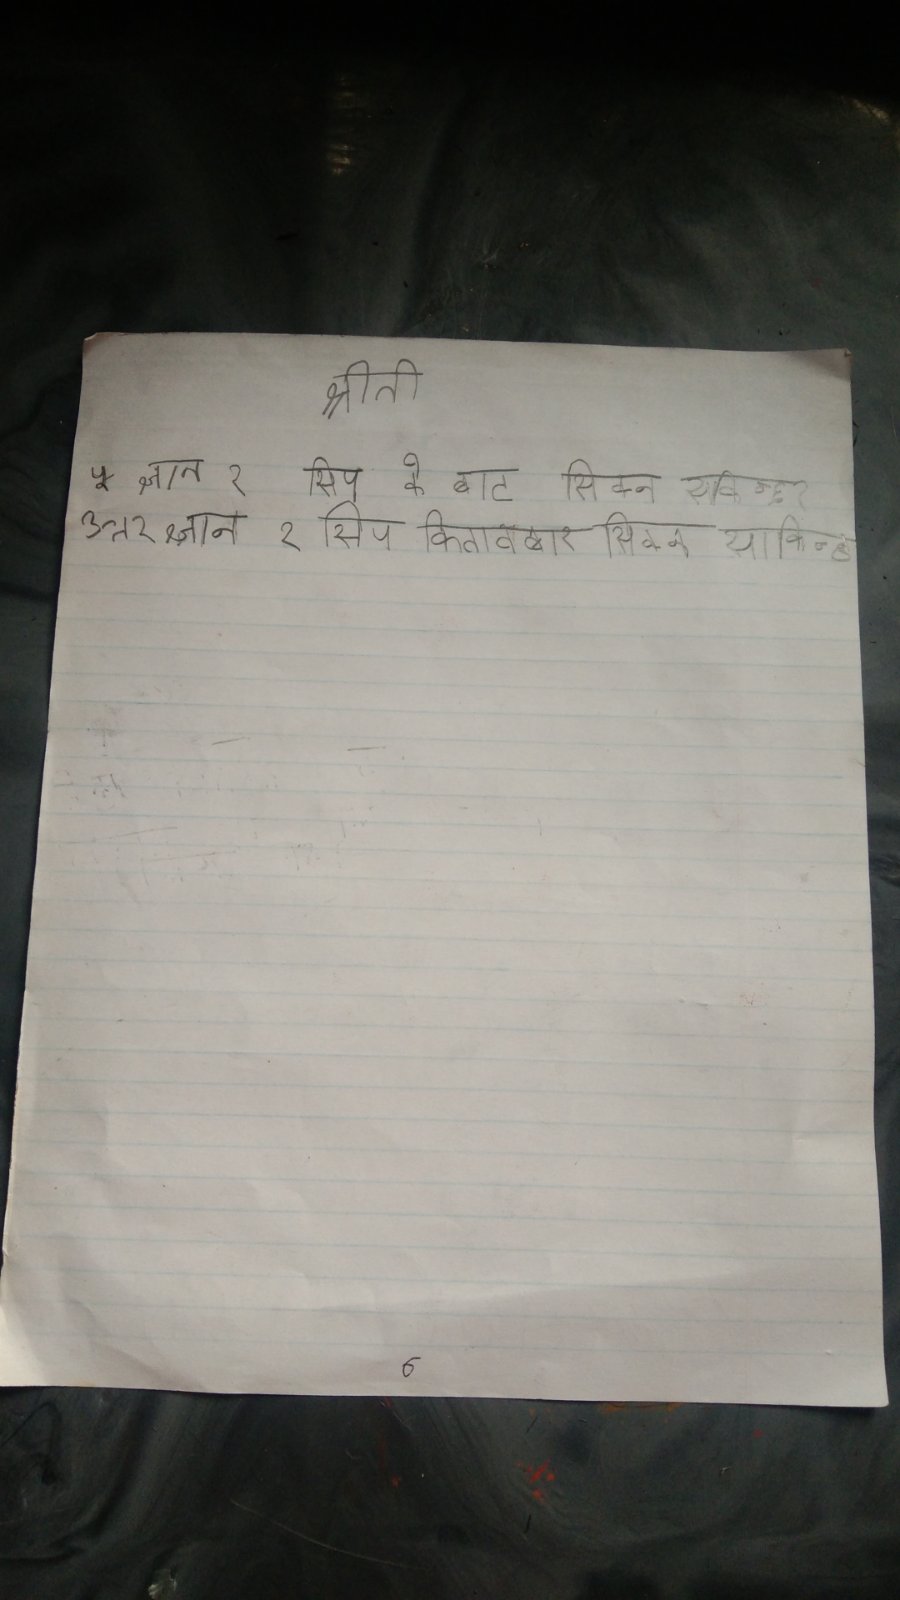 श्रीती
५ ज्ञान र सिप के बाट सिक्न सकिन्छ?
उत्तर ज्ञान र सिप कितावबार सिक्न साकिन्छ
६